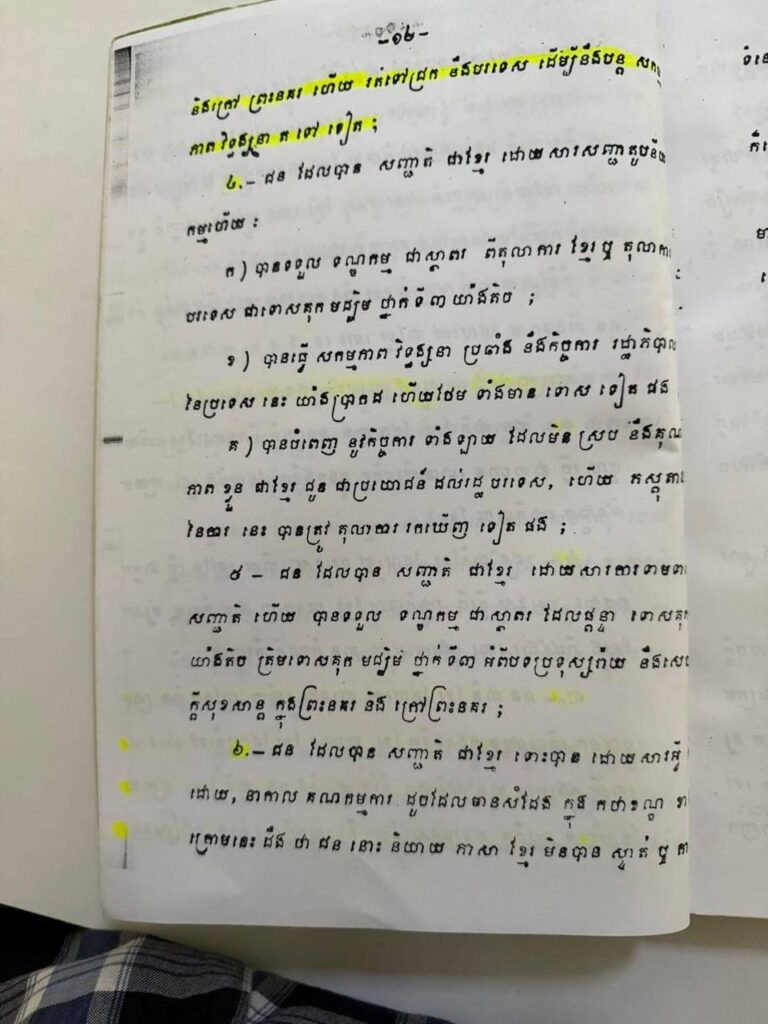 -១៤-
និងក្រៅ ព្រះនគរ ហើយ រត់ទៅជ្រក នឹងបរទេស ដើម្បីនឹងបន្ត សកម្ម
ភាព វិទ្ធង្សនា ត ទៅ ទៀត ;
៤.– ជន ដែលបាន សញ្ជាតិ ជាខ្មែរ ដោយសារសញ្ជាតូបនិយ
កម្មហើយ :
ក ) បានទទួល ទណ្ឌកម្ម ជាស្ថាពរ ពីតុលាការ ខ្មែរ ឬ តុលាការ
បរទេស ជាទោសគុក មជ្ឈិម ថ្នាក់ ទី ៣ យ៉ាងតិច ;
ខ ) បានធ្វើ សកម្មភាព វិទ្ធង្សនា ប្រឆាំង នឹងកិច្ចការ រដ្ឋាភិបាល
នៃប្រទេស នេះ យ៉ាងប្រាកដ ហើយថែម ទាំងមាន ទោស ទៀត ផង
គ ) បានបំពេញ នូវកិច្ចការ ទាំងឡាយ ដែលមិន ស្រប នឹងគុណ
ភាព ខ្លួន ជាខ្មែរ ជូន ជាប្រយោជន៍ ដល់រដ្ឋ បរទេស, ហើយ ភស្តុតាង
នៃការ នេះ បានត្រូវ តុលាការ រកឃើញ ទៀត ផង ;
៥ – ជន ដែលបាន សញ្ជាតិ ជាខ្មែរ ដោយសារការទាមទារ
សញ្ជាតិ ហើយ បានទទួល ទណ្ឌកម្ម ជាស្ថាពរ ដែលផ្តន្ទា ទោសគុក
យ៉ាងតិច ត្រឹមទោសគុក មជ្ឈិម ថ្នាក់ ទី៣ អំពីបទប្រទុស្សរ៉ាយ នឹងសេច
ក្តីសុខសាន្ត ក្នុងព្រះនគរ និង ក្រៅព្រះនគរ ;
៦.– ជន ដែលបាន សញ្ជាតិ ជាខ្មែរ ទោះបាន ដោយសារអ្វី
ដោយ, នាកាល គណកម្មការ ដូចដែលមានសំដែង ក្នុង កថាខណ្ឌ ខាង
ក្រោមនេះ ដឹង ថា ជន នោះ និយាយ ភាសា ខ្មែរ មិនបាន ស្ទាត់ ឬ កាល